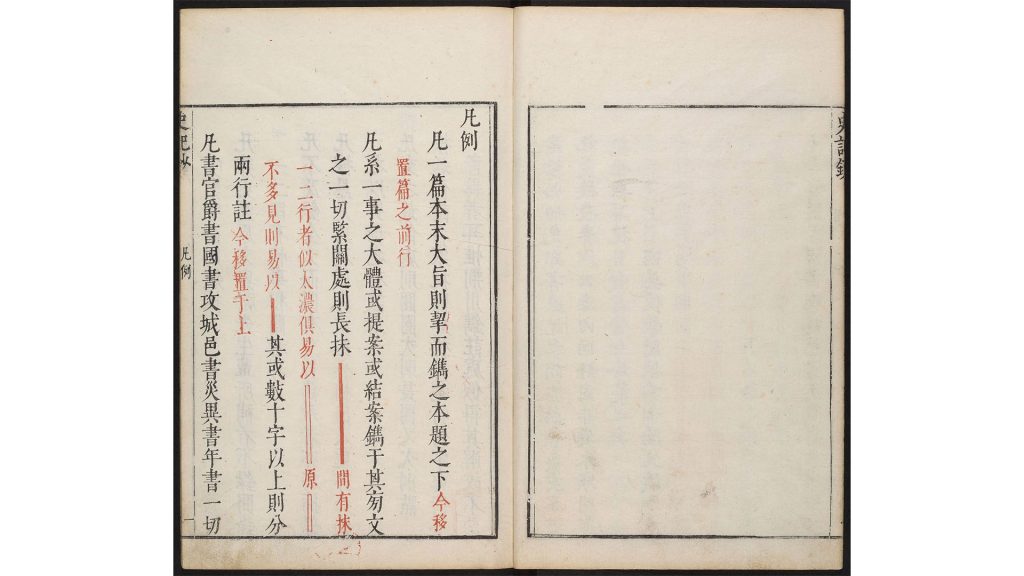 史記鈔
凡例
凡一篇本末大旨則挈而鐫之本題之下今移
置篇之前行
凡系一事之大體或提案或結案鐫于其旁文
之一切緊關處則長抹間有抹
一二行者似太濃俱易以原
不多見則易以其或數十字以上則分
兩行註今移置于上
凡書官爵書國書攻城邑書災異書年書一切
史記鈔
凡例
一